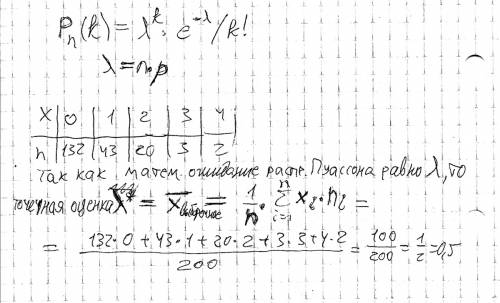 Pₙ(k) = λᵏ · e^-λ / k!
λ = n·p
X | 0 | 1 | 2 | 3 | 4
n | 132 | 43 | 20 | 3 | 2
Так как матем. ожидание распр. Пуассона равно λ, то
точечная оценка = x̄ выборочное = 1/n · Σ i=1 n xᵢ · nᵢ =
= (132·0 + 43·1 + 20·2 + 3·3 + 4·2)/200 = 100/200 = 1/2 = 0,5